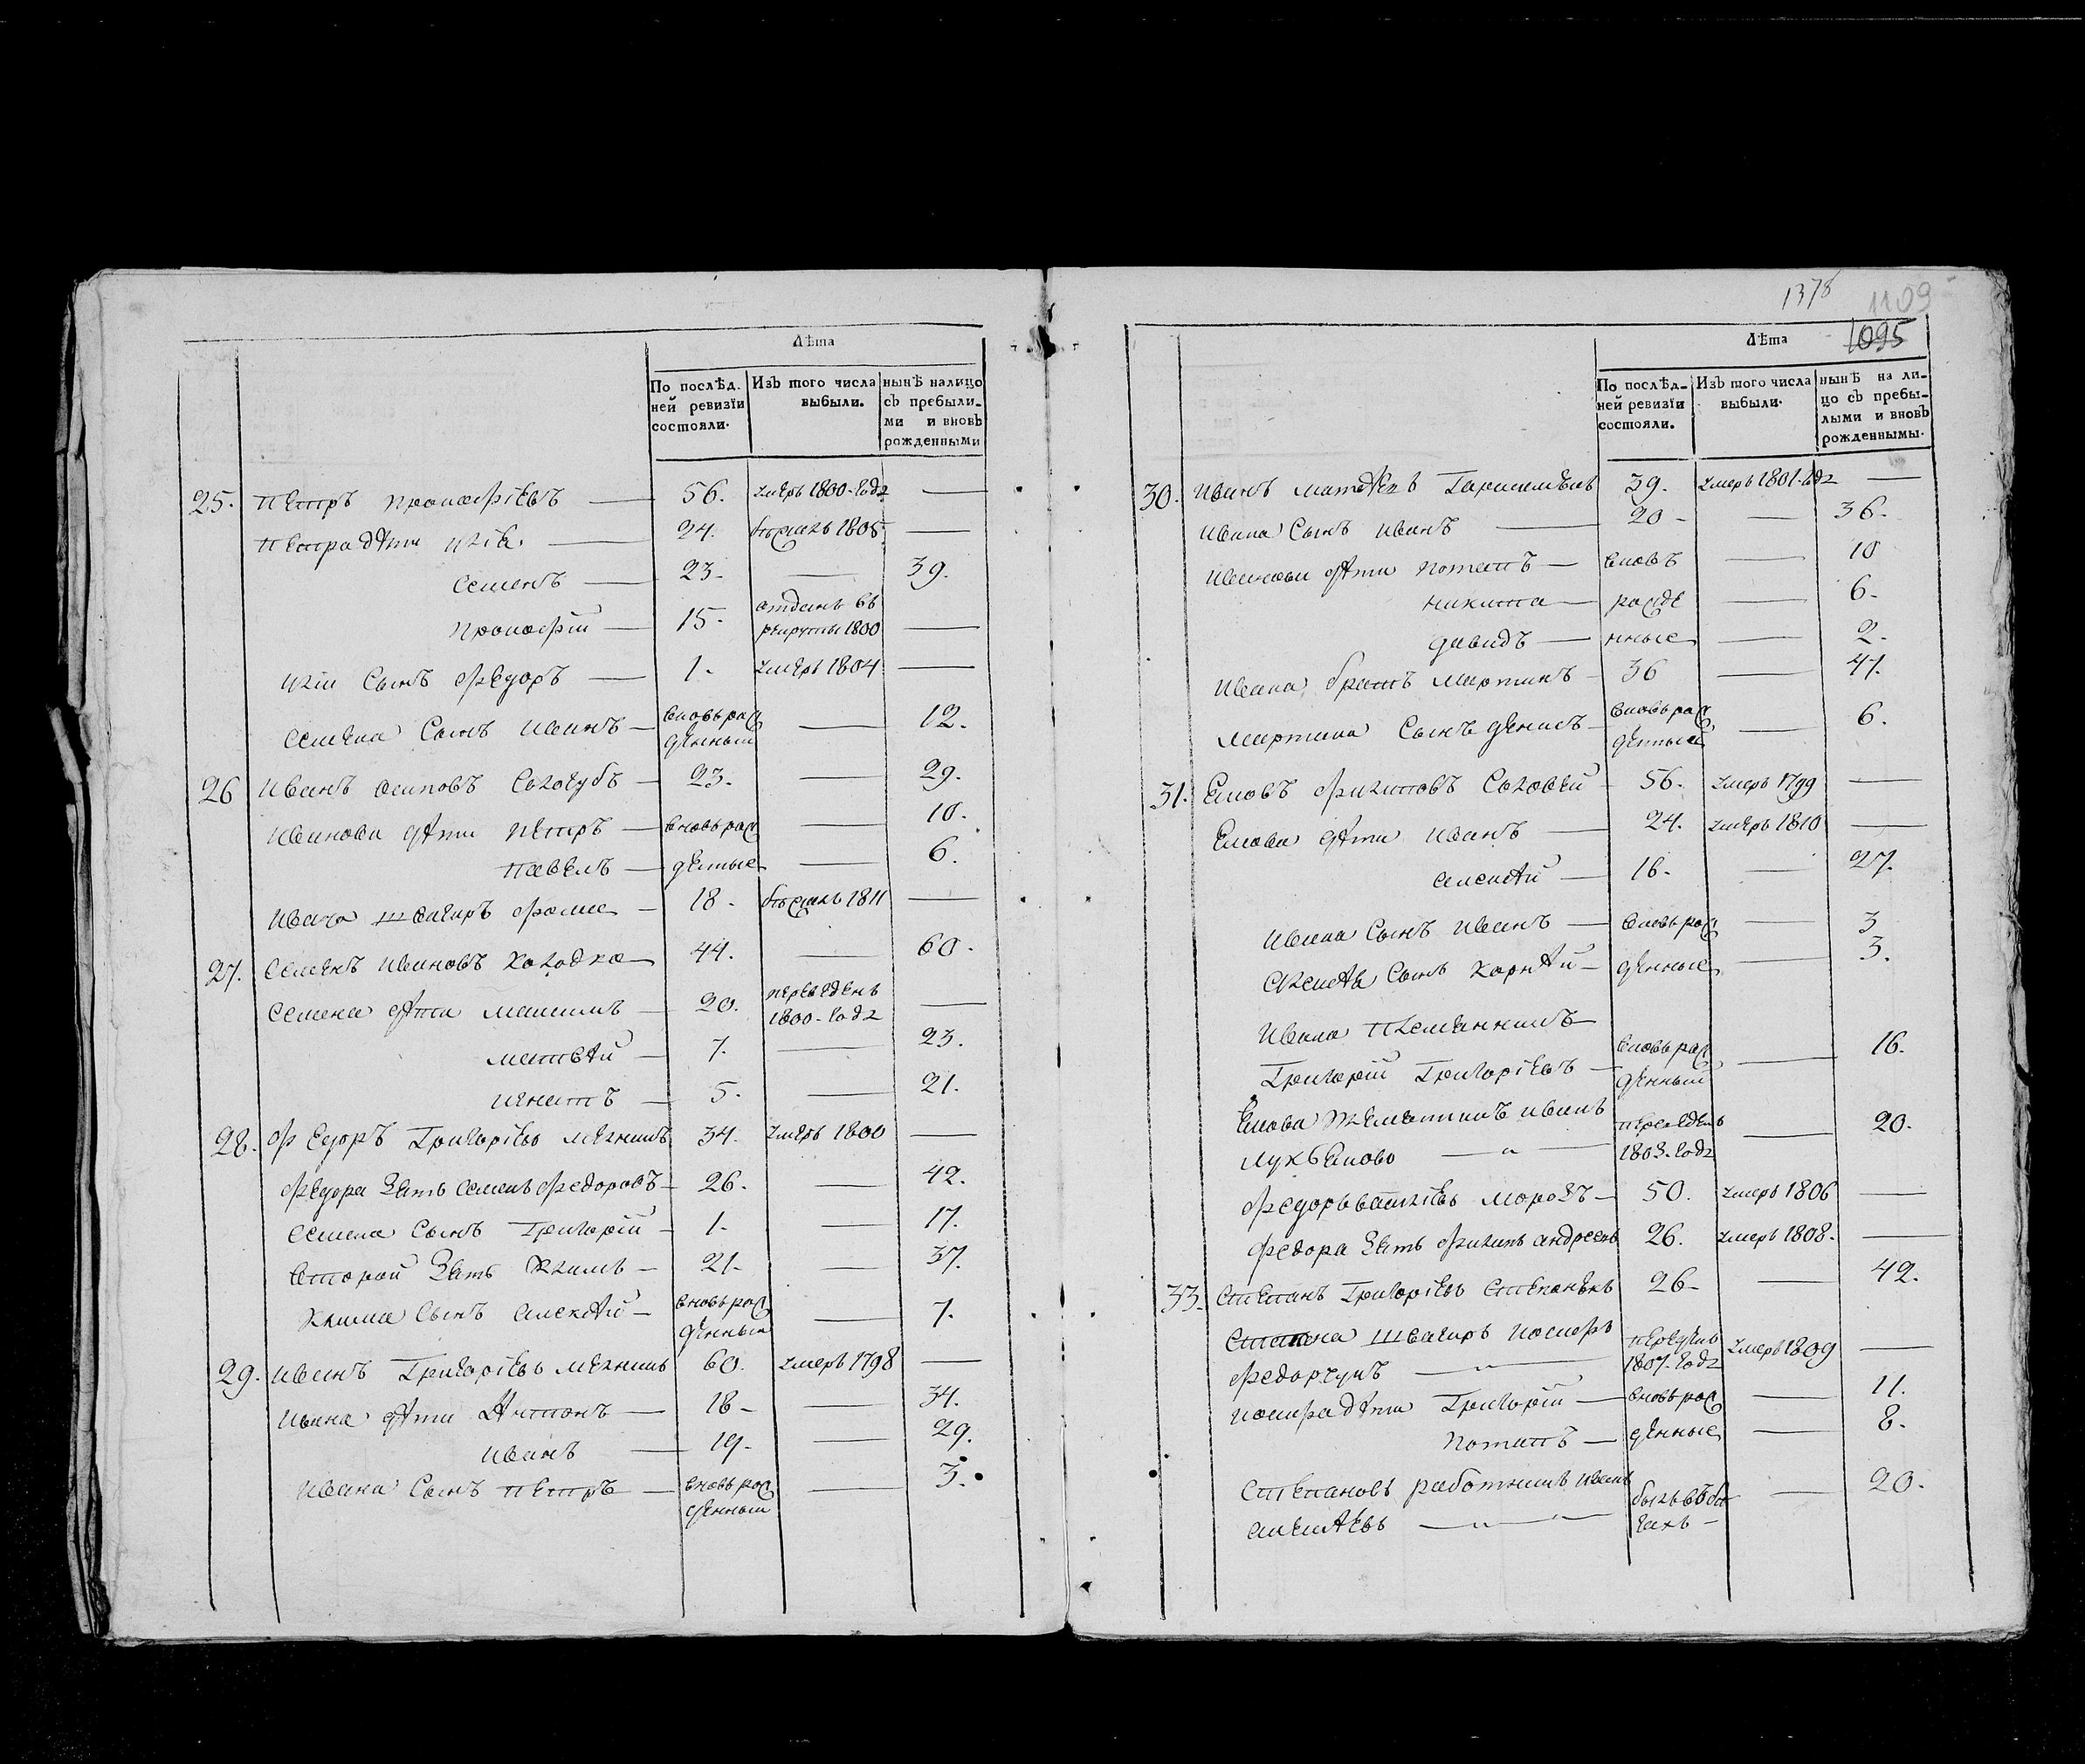 Лѣта
По послѣд. ней ревизїи состояли. Изъ того числа выбыли. нынѣ налицо съ пребылы_ ми и вновь рожденными
25. Петръ Прокофіевъ — 56. умеръ 1800 года —
Петра дѣти Илія — 24. бѣжалъ 1805 —
Семенъ — 23. — 39.
Прокофій — 15. отданъ въ рекруты 1800 —
Иліи Сынъ Федоръ — 1. умеръ 1804 —
Семена Сынъ Иванъ — вновь рожденный — 12.
26 Иванъ Осиповъ Сологубъ — 23. — 29.
Ивановы дѣти Петръ — вновь рож — 10.
Павелъ — денные — 6.
Ивана швагиръ Фома — 18. бѣжалъ 1811 —
27. Семенъ Ивановъ Колодка 44. — 60.
Семена дѣти Максимъ — 20. переведенъ 1800 года —
Матвѣй — 7. — 23.
Игнатъ — 5. — 21.
28. Федоръ Григорїевъ 34. умеръ 1800 —
Федора Зять Семенъ Федоровъ — 26. — 42.
Семена Сынъ Григорій — 1. — 17.
Второй Зять Климъ — 21. — 37.
Клима Сынъ Алексѣй — вновь рожденный — 7.
29. Иванъ Григорїевъ 60. умеръ 1798 —
Ивана дѣти Антонъ — 18 — 34.
Иванъ — 19. — 29.
Ивана Сынъ Петръ — вновь рожденный — 3.
1378
1109
1095
Лѣта
По послѣд_ ней ревизїи состояли. Изъ того числа выбыли. нынѣ на ли_ цо съ пребы_ лыми и вновь рожденнымы.
30. Иванъ Матвѣевъ 39. умеръ 1801 года —
Ивана Сынъ Иванъ — 20 — 36.
Ивановы дѣти Потапъ — вновь — 10
Никита — рожде — 6.
Давидъ — нные — 2.
Ивана братъ Мартинъ — 36 — 47.
Мартина Сынъ Денисъ — вновь рожденный — 6.
31. Яковъ Филиповъ Соловей — 56. умеръ 1799 —
Якова дѣти Иванъ — 24. умеръ 1810 —
Алексѣй — 16. — 27.
Ивана Сынъ Иванъ — вновь рож — 3
Алексѣя Сынъ Корнѣй — денные — 3.
Ивана племянникъ
Григорій Григорїевъ — вновь рожденный — 16.
Якова племянникъ Иванъ переведенъ — 20.
— „ — 1803 года
Федоръ Василїевъ Морозъ — 50. умеръ 1806 —
Федора Зять Филипъ Андреевъ 26. умеръ 1808. —
33. Степанъ Григорїевъ 26 — 42.
Степана швагиръ Иосифъ переведенъ умеръ 1809 —
Федорчукъ — „ — 1807 года
Иосифа дѣти Григорій — вновь рож — 11.
Потапъ — денные — 8.
Степановъ работникъ Иванъ былъ въ бѣ — 20.
Алексѣевъ — „ — гахъ —